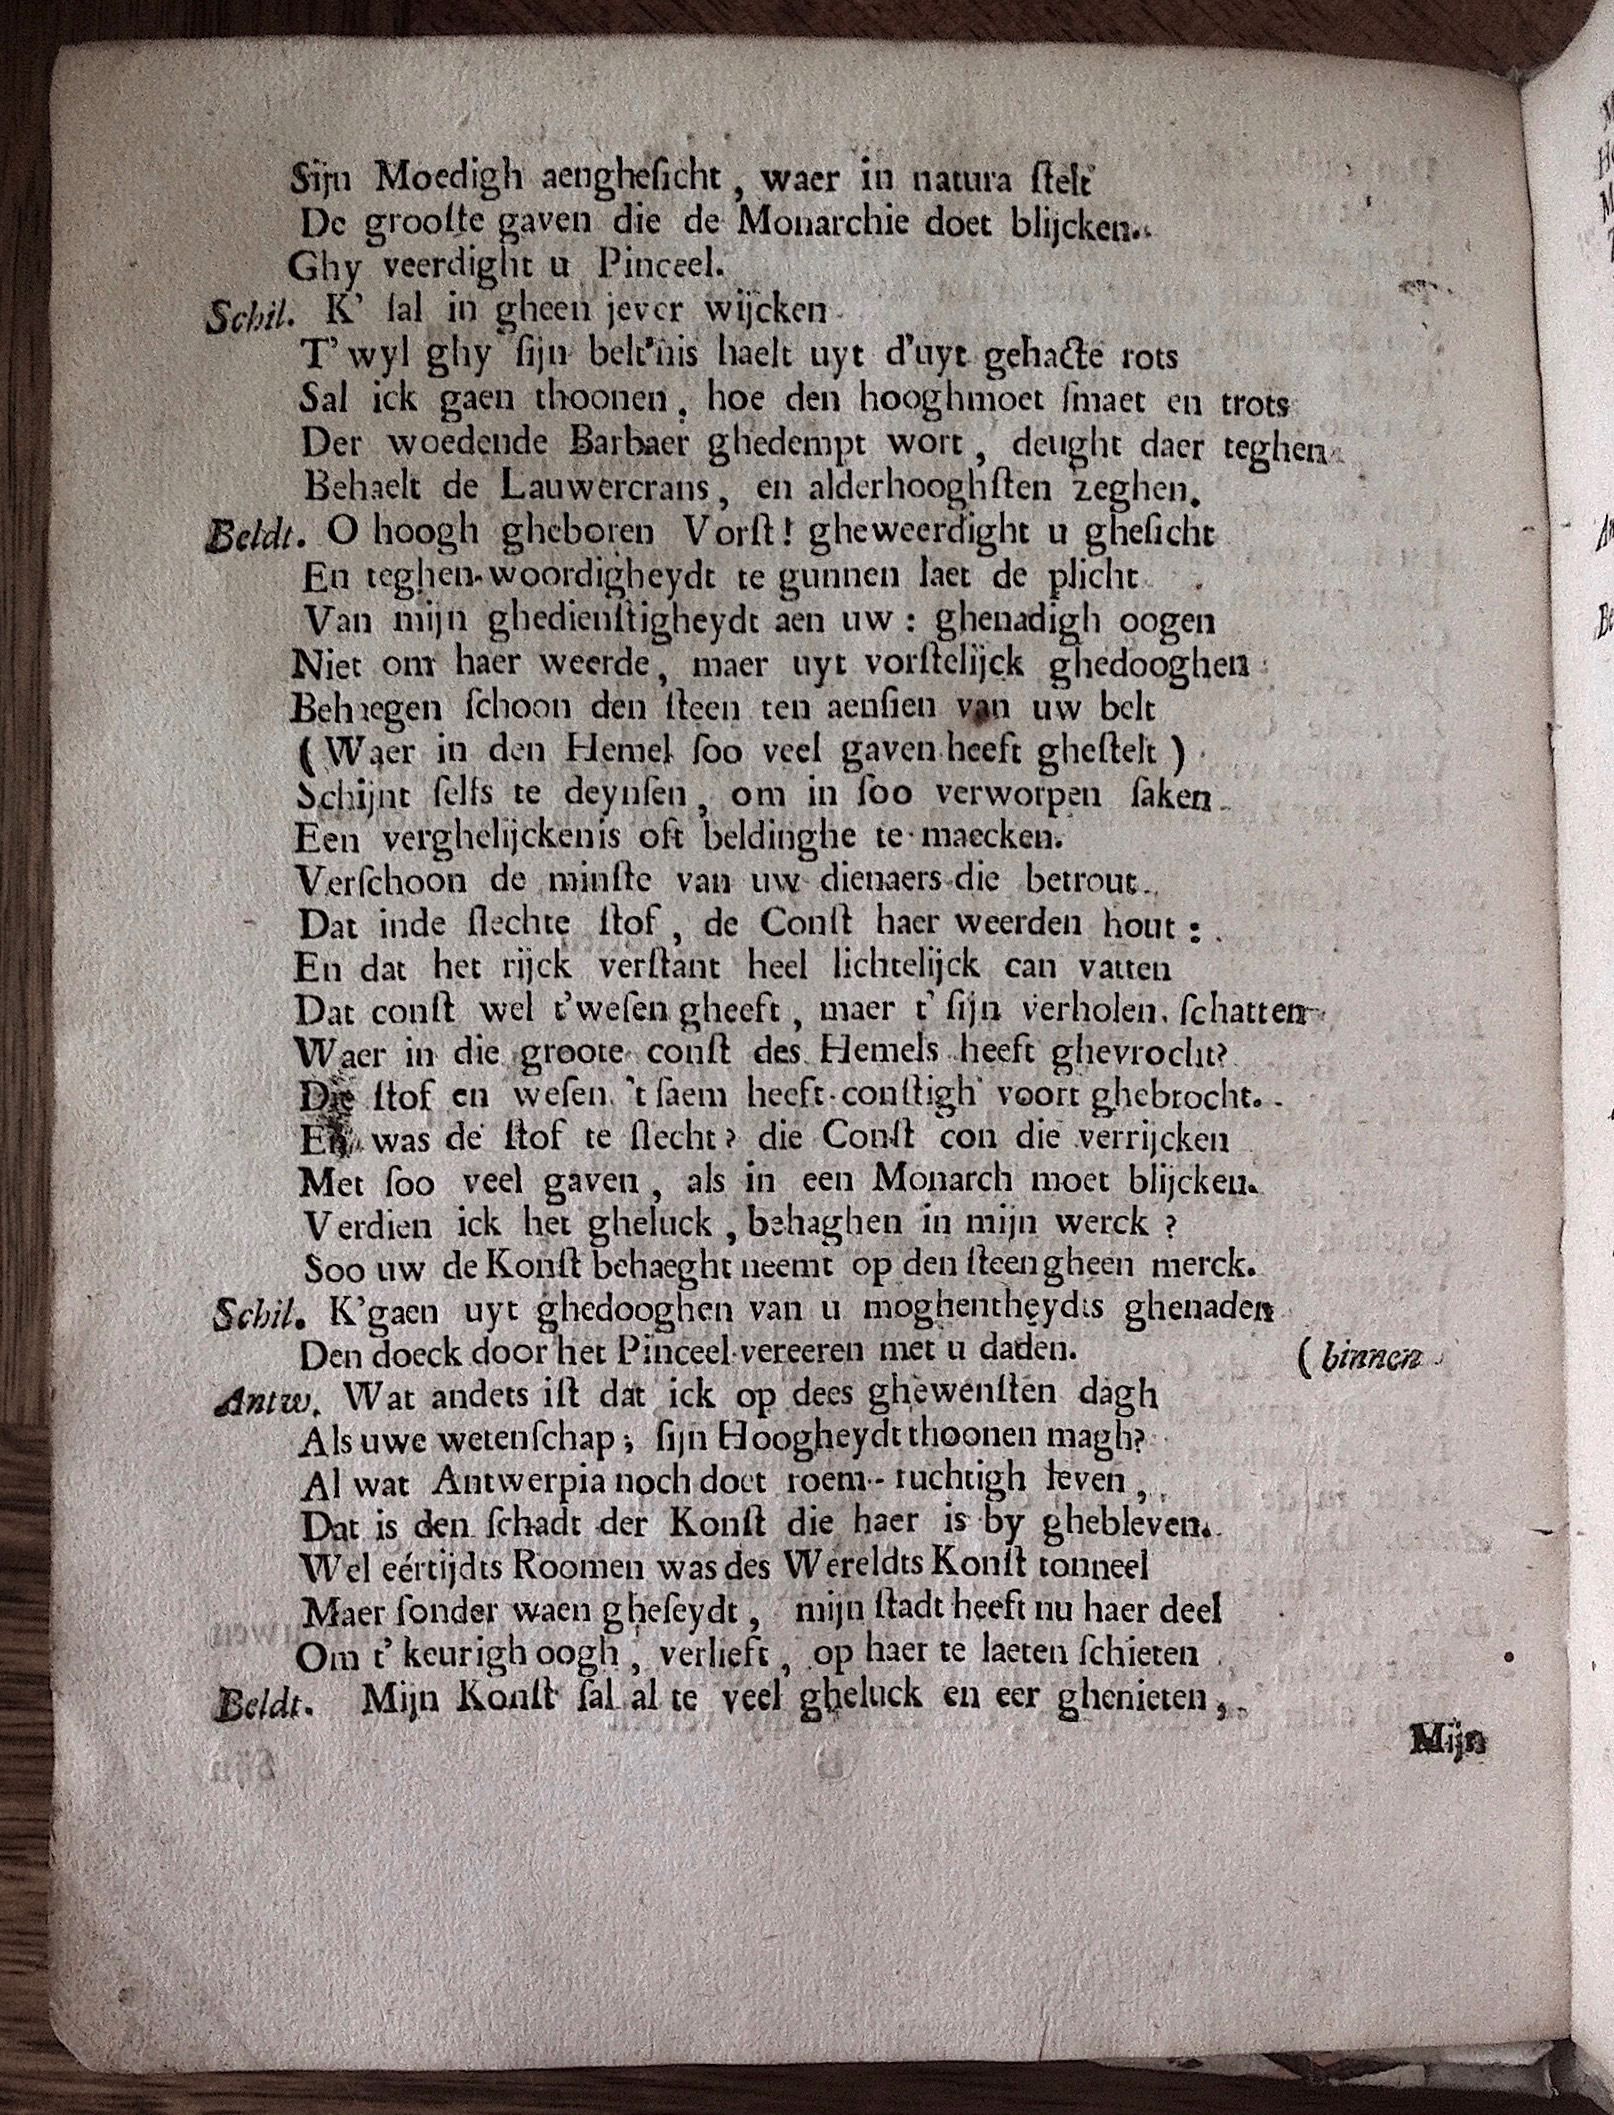 Sijn Moedigh aengheſicht, waer in natura ſtelt
De grooſte gaven die de Monarchie doet blijcken.
Ghy veerdight u Pinceel.
Schil. K' ſal in gheen jever wijcken
T'wyl ghy ſijn belt'nis haelt uyt d'uyt gehacte rots
Sal ick gaen thoonen, hoe den hooghmoet ſmaet en trots
Der woedende Barbaer ghedempt wort, deught daer teghen
Behaelt de Lauwercrans, en alderhooghſten zeghen.
Beldt. O hoogh gheboren Vorſt! gheweerdight u gheſicht
En teghen-woordigheydt te gunnen laet de plicht
Van mijn ghedienſtigheydt aen uw: ghenadigh oogen
Niet om haer weerde, maer uyt vorſtelijck ghedooghen
Behaegen ſchoon den ſteen ten aenſien van uw belt
(Waer in den Hemel ſoo veel gaven heeft gheſtelt)
Schijnt ſelfs te deynſen, om in ſoo verworpen ſaken
Een verghelijckenis oft beldinghe te maecken.
Verſchoon de minſte van uw dienaers die betrout
Dat inde ſlechte ſtof, de Conſt haer weerden hout:
En dat het rijck verſtant heel lichtelijck can vatten
Dat conſt wel t'weſen gheeft, maer t' ſijn verholen ſchatten
Waer in die groote conſt des Hemels heeft ghevrocht?
Die ſtof en weſen 't ſaem heeft conſtigh voort ghebrocht.
En was de ſtof te ſlecht? die Conſt con die verrijcken
Met ſoo veel gaven, als in een Monarch moet blijcken.
Verdien ick het gheluck, behaghen in mijn werck?
Soo uw de Konſt behaeght neemt op den ſteen gheen merck.
Schil. K'gaen uyt ghedooghen van u moghentheydts ghenaden
Den doeck door het Pinceel vereeren met u daden. (binnen
Antw. Wat andets iſt dat ick op dees ghewenſten dagh
Als uwe wetenſchap; ſijn Hoogheydt thoonen magh?
Al wat Antwerpia noch doet roem-ruchtigh leven,
Dat is den ſchadt der Konſt die haer is by ghebleven.
Wel eértijdts Roomen was des Wereldts Konſt tonneel
Maer ſonder waen gheſeydt, mijn ſtadt heeft nu haer deel
Om t' keurigh oogh, verlieft, op haer te laeten ſchieten
Beldt. Mijn Konſt ſal al te veel gheluck en eer ghenieten,
Mijn